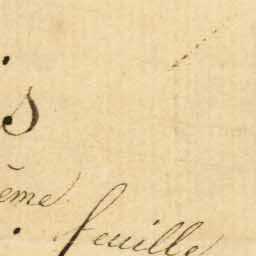 is
ème
feuille